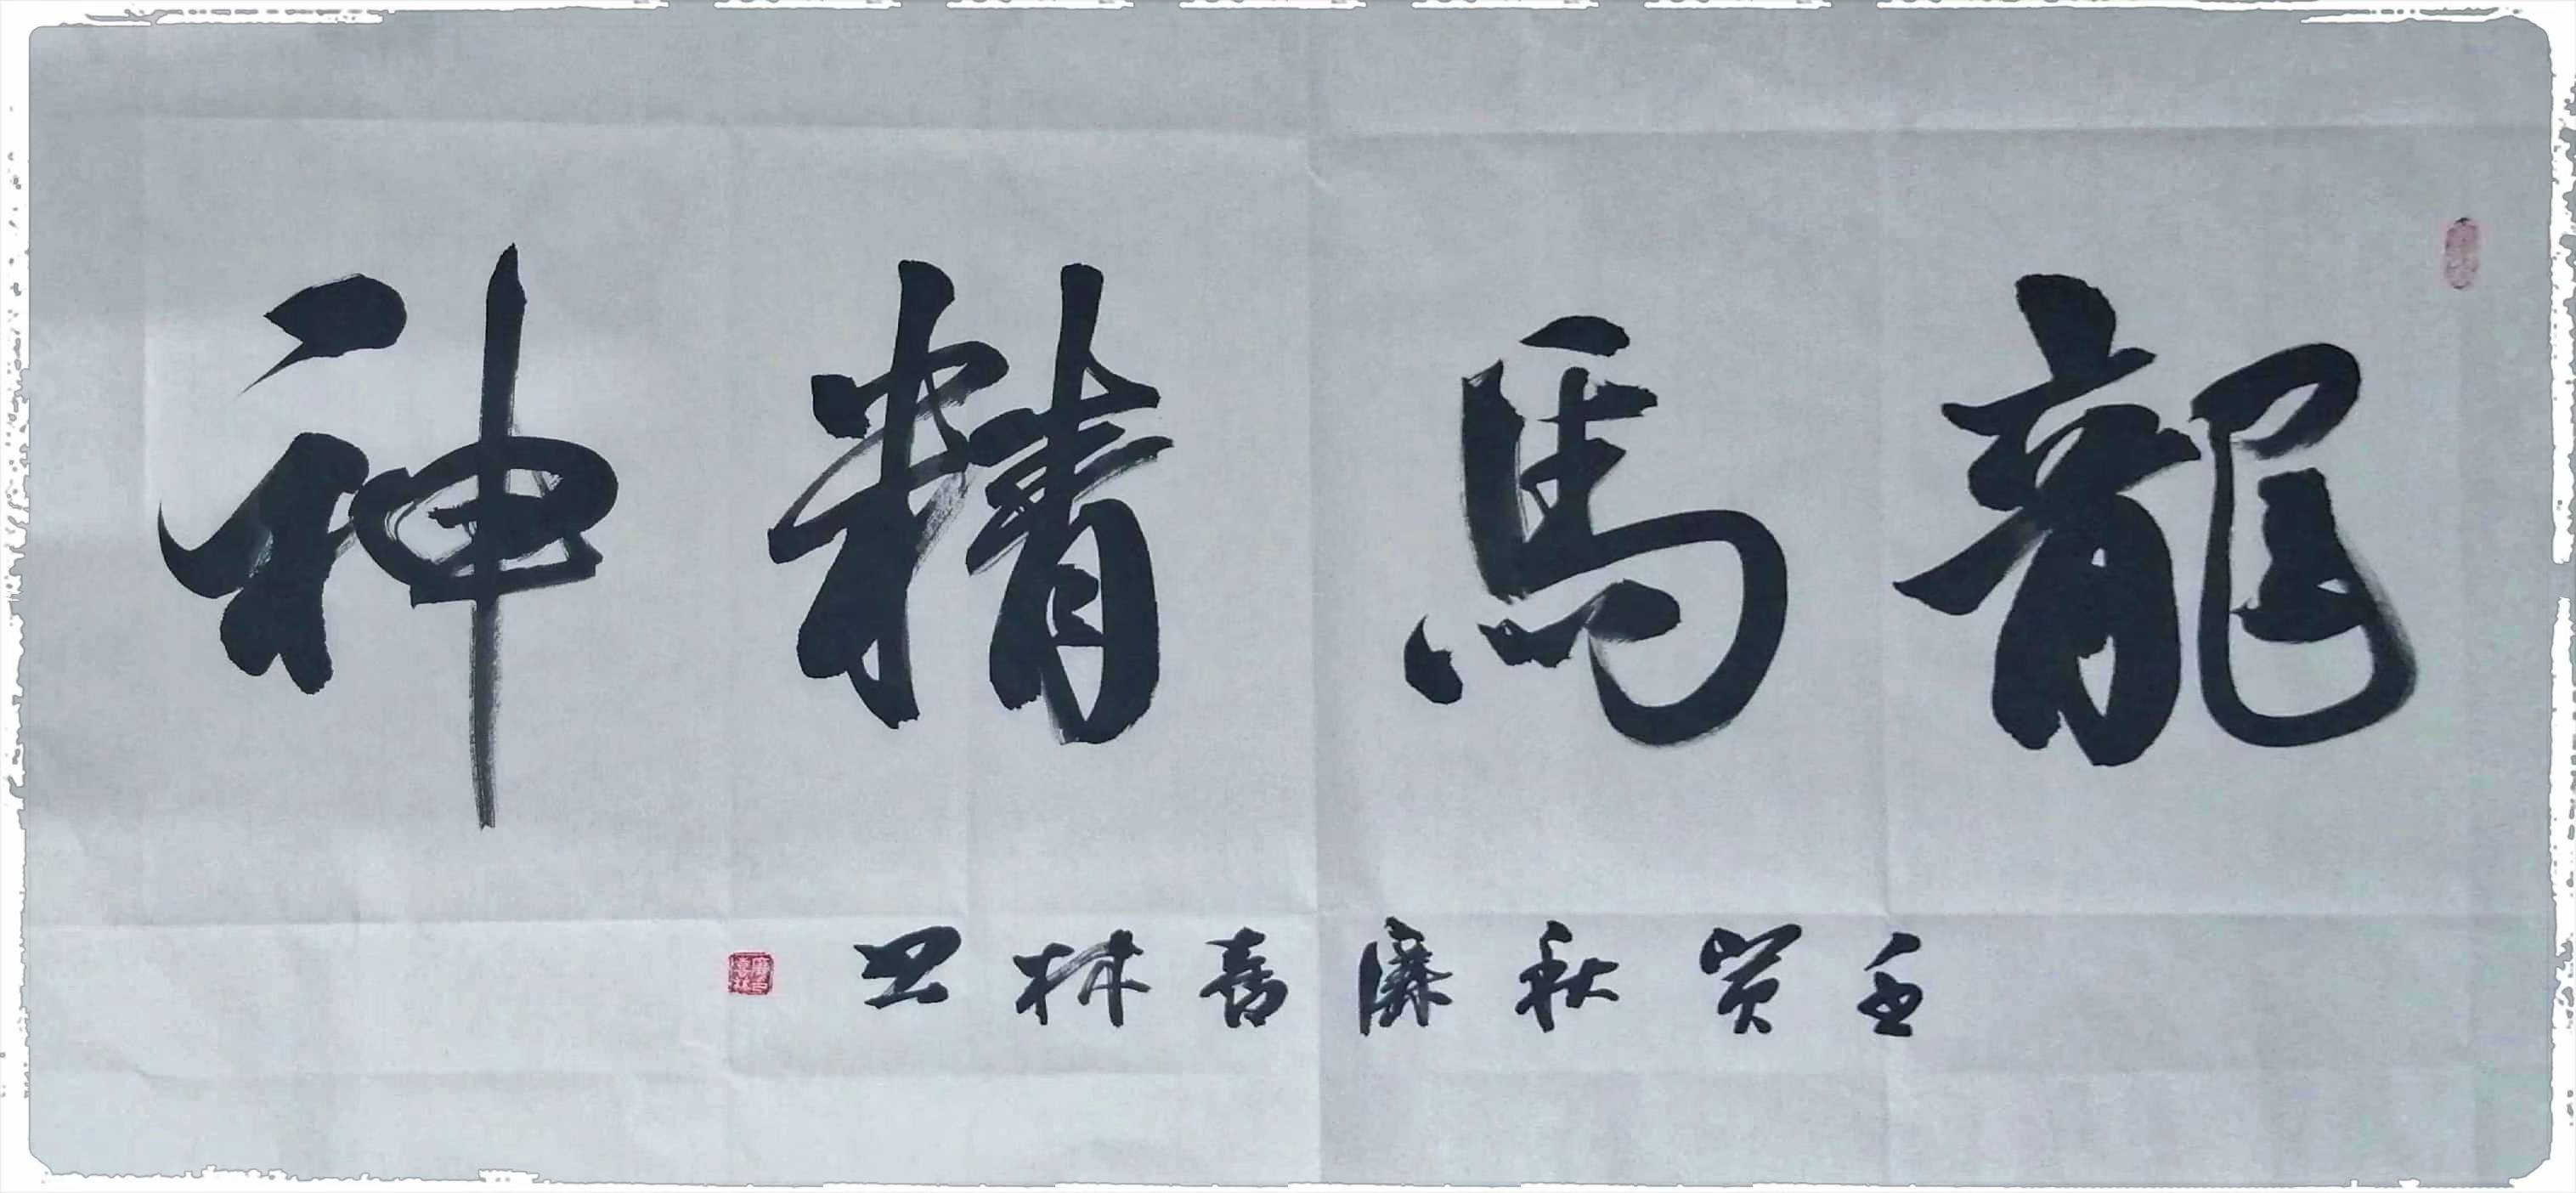 龍馬精神
壬寅秋廉喜林书